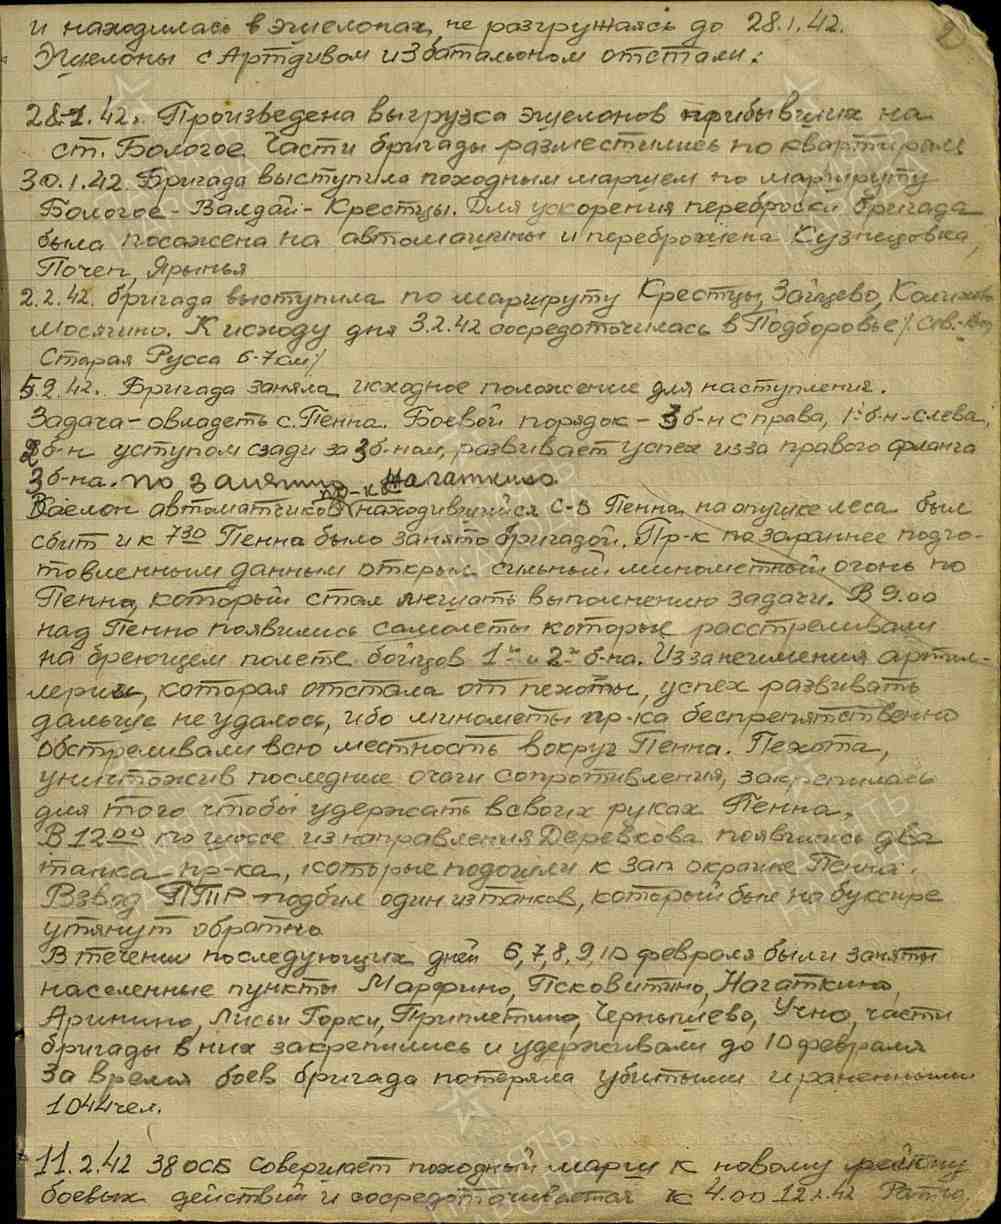 2
и находилась в эшелонах, не разгружаясь до 28.1.42.
Эшелоны с Артдивом и 3 батальоном отстали.
28.1.42. Произведена выгрузка эшелонов прибывших на
ст. Бологое. Части бригады разместились по квартирам
30.1.42. Бригада выступила походным маршем по маршруту
Бологое - Валдай - Крестцы. Для ускорения переброски бригада
была посажена на автомашины и переброшена Кузнецовка,
Почеп, Ярынья
2.2.42. бригада выступила по маршруту Крестцы, Зайцево,
Мосягино. К исходу дня 3.2.42 сосредоточилась в Подборовье /Сев.-Вост
Старая Русса 6-7 км/
5.2.42. Бригада заняла исходное положение для наступления.
Задача - овладеть с. Пенна. Боевой порядок - 3 б-н справа, 1 б-н слева,
2 б-н уступом сзади за 3 б-ном, развивает успех из за правого фланга
3 б-на. по занятию Нагаткино.
Заслон автоматчиков пр-ка находившийся С-В Пенна, на опушке леса был
сбит и к 7 30 Пенна было занято бригадой. Пр-к по заранее подго-
товленным данным открыл сильный минометный огонь по
Пенна, который стал мешать выполнению задачи. В 9.00
над Пенно появились самолеты которые расстреливали
на бреющем полете бойцов 1го и 2го б-на. Из за неимения артил-
лерии, которая отстала от пехоты, успех развивать
дальше не удалось, ибо минометы пр-ка беспрепятственно
обстреливали всю местность вокруг Пенна. Пехота,
уничтожив последние очаги сопротивления, закрепилась
для того чтобы удержать в своих руках Пенна.
В 12 00 по шоссе из направления Деревкова появились два
танка пр-ка, которые подошли к зап окраине Пенна.
Взвод ПТР подбил один из танков, который был на буксире
утянут обратно
В течении последующих дней 6, 7, 8, 9, 10 февраля были заняты
населенные пункты Марфино, Псковитино, Нагаткино,
Аринино, Лисьи Горки, Гриплетино, Чернышево, Учно, части
бригады в них закрепились и удерживали до 10 февраля
За время боев бригада потеряла убитыми и раненными
1044 чел.
11.2.42 38 ОСБ Совершает походный марш к новому району
боевых действий и сосредотачивается к 4.00 12.2.42